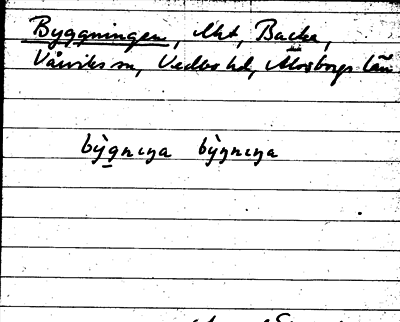 Byggningen, Lht, Backa,
Vårviks sn, Vedbo hd, Älvsborgs län
bỳgnıŋa bỳŋnıŋa